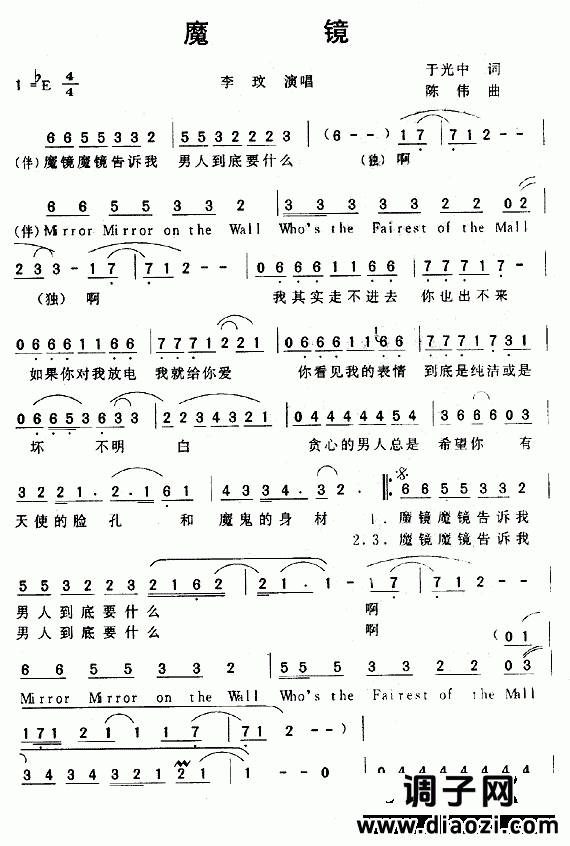 魔 镜
1=♭E 4/4 李玟 演唱 于光中 词
陈伟 曲
6 6 5 5 3 3 2 | 5 5 3 2 2 2 3 | (6 - -) 1 7 | 7 1 2 - - |
(伴)魔镜魔镜告诉我 男人到底要什么 (独)啊
6 6 5 5 3 3 2 | 3 3 3 3 3 2 2 0 2 |
(伴)Mirror Mirror on the Wall Who's the Fairest of the Mall
2 3 3 - - 1 7 | 7 1 2 - - | 0 6 6 6 1 1 6 6 | 7 7 7 1 7 - |
(独)啊 我其实走不进去 你也出不来
0 6 6 6 6 1 1 6 6 | 7 7 7 1 2 2 1 | 0 6 6 6 1 1 6 6 | 7 7 7 1 7 3 1 |
如果你对我放电 我就给你爱 你看见我的表情 到底是纯洁或是
0 6 6 5 3 6 3 3 | 2 2 3 4 3 2 1 | 0 4 4 4 4 4 5 4 | 3 6 6 6 0 3 |
坏 不明 白 贪心的男人总是 希望你 有
3 2 2 1 . 2 . 1 6 1 | 4 3 3 4 . 3 2 | 6 6 5 5 3 3 2 |
天使的脸孔 和 魔鬼的身材 1. 魔镜魔镜告诉我
2.3. 魔镜魔镜告诉我
5 5 3 2 2 3 2 1 6 2 | 2 1 . 1 - 1 7 | 7 1 2 - - |
男人到底要什么 啊
男人到底要什么 啊 (0 1
6 6 5 5 3 3 2 | 5 5 5 3 3 2 2 0 3 |
Mirror Mirror on the Wall Who's the Fairest of the Mall
1 7 1 2 1 1 1 7 | 7 1 2 - - ) |
3 4 3 4 3 2 1 2 1 | 1 - - 0 | 0 4 4 4 4 4 4 4
调子网
www.diaozi.com